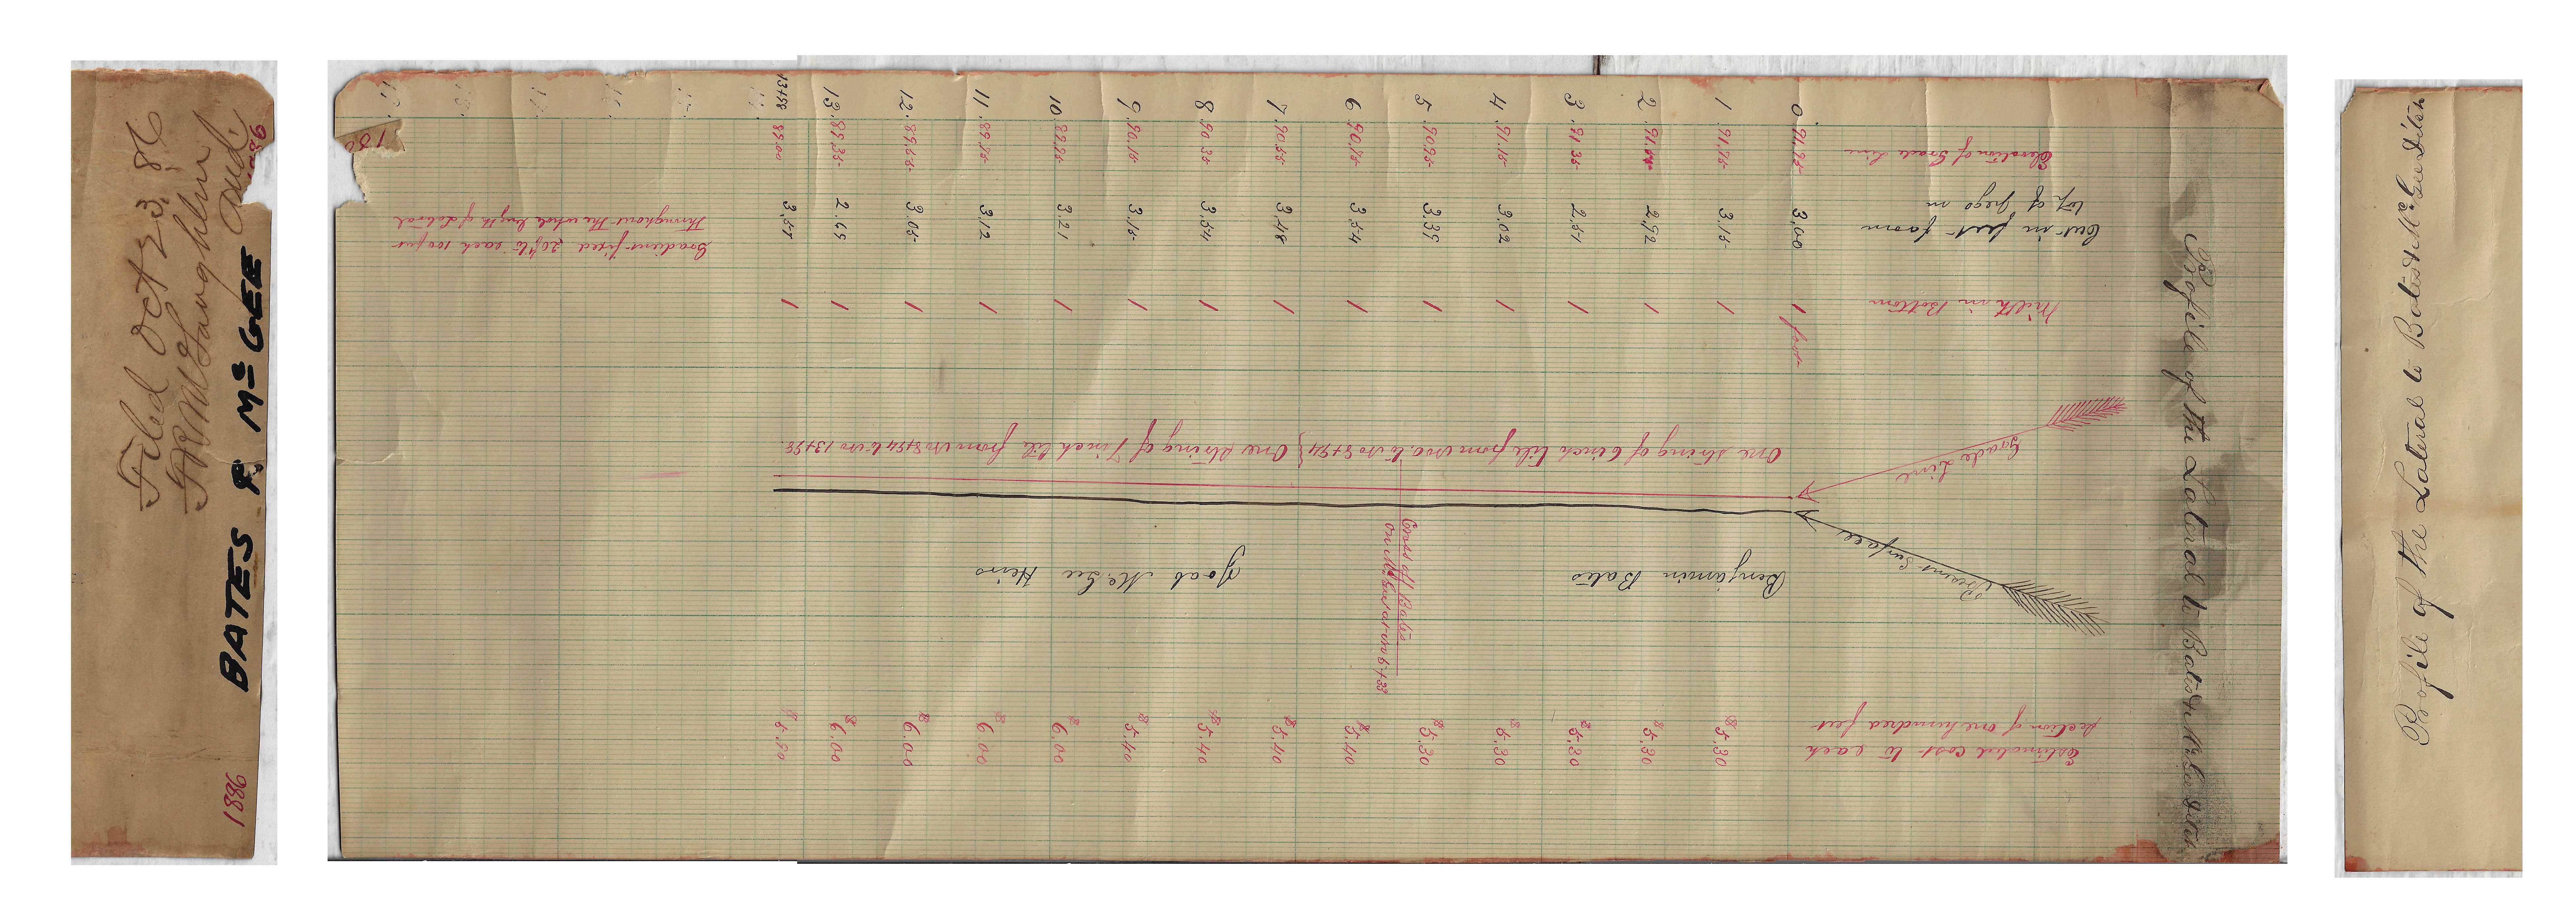 Filed Oct 23, 86
Aud.
BATES & McGEE
1886
180
Profile of the Lateral to Bates & McGee Ditch
Elevation of Grade Line
0 91.95 1 91.75 2 91.55 3 91.35 4 91.15 5 90.95 6 90.75 7 90.55 8 90.35 9 90.15 10 89.95 11 89.75 12 89.55 13 89.35 13+98 89.00
Cut in feet from
top of pegs in
3.00 3.15 2.92 2.51 3.02 3.39 3.54 3.48 3.54 3.15 3.21 3.12 3.05 2.69 3.55
Gradient fixed 20/100 ft to each 100 feet
throughout the whole length of Lateral
Width in Bottom
1 foot 1 1 1 1 1 1 1 1 1 1 1 1 1 1
Grade Line
One string of 6 inch tile from No 0. to No 8+54 } One string of 7 inch tile from No 8+54 to No 13+98.
Present Surface
Benjamin Bates
Cross off Bates
on McGee at No 5+33
Joab McGee Heirs
Estimated cost to each
section of one hundred feet
$5.30 $5.30 $5.30 $5.30 $5.30 $5.40 $5.40 $5.40 $5.40 $6.00 $6.00 $6.00 $6.00 $5.90
Profile of the Lateral to Bates & McGee Ditch